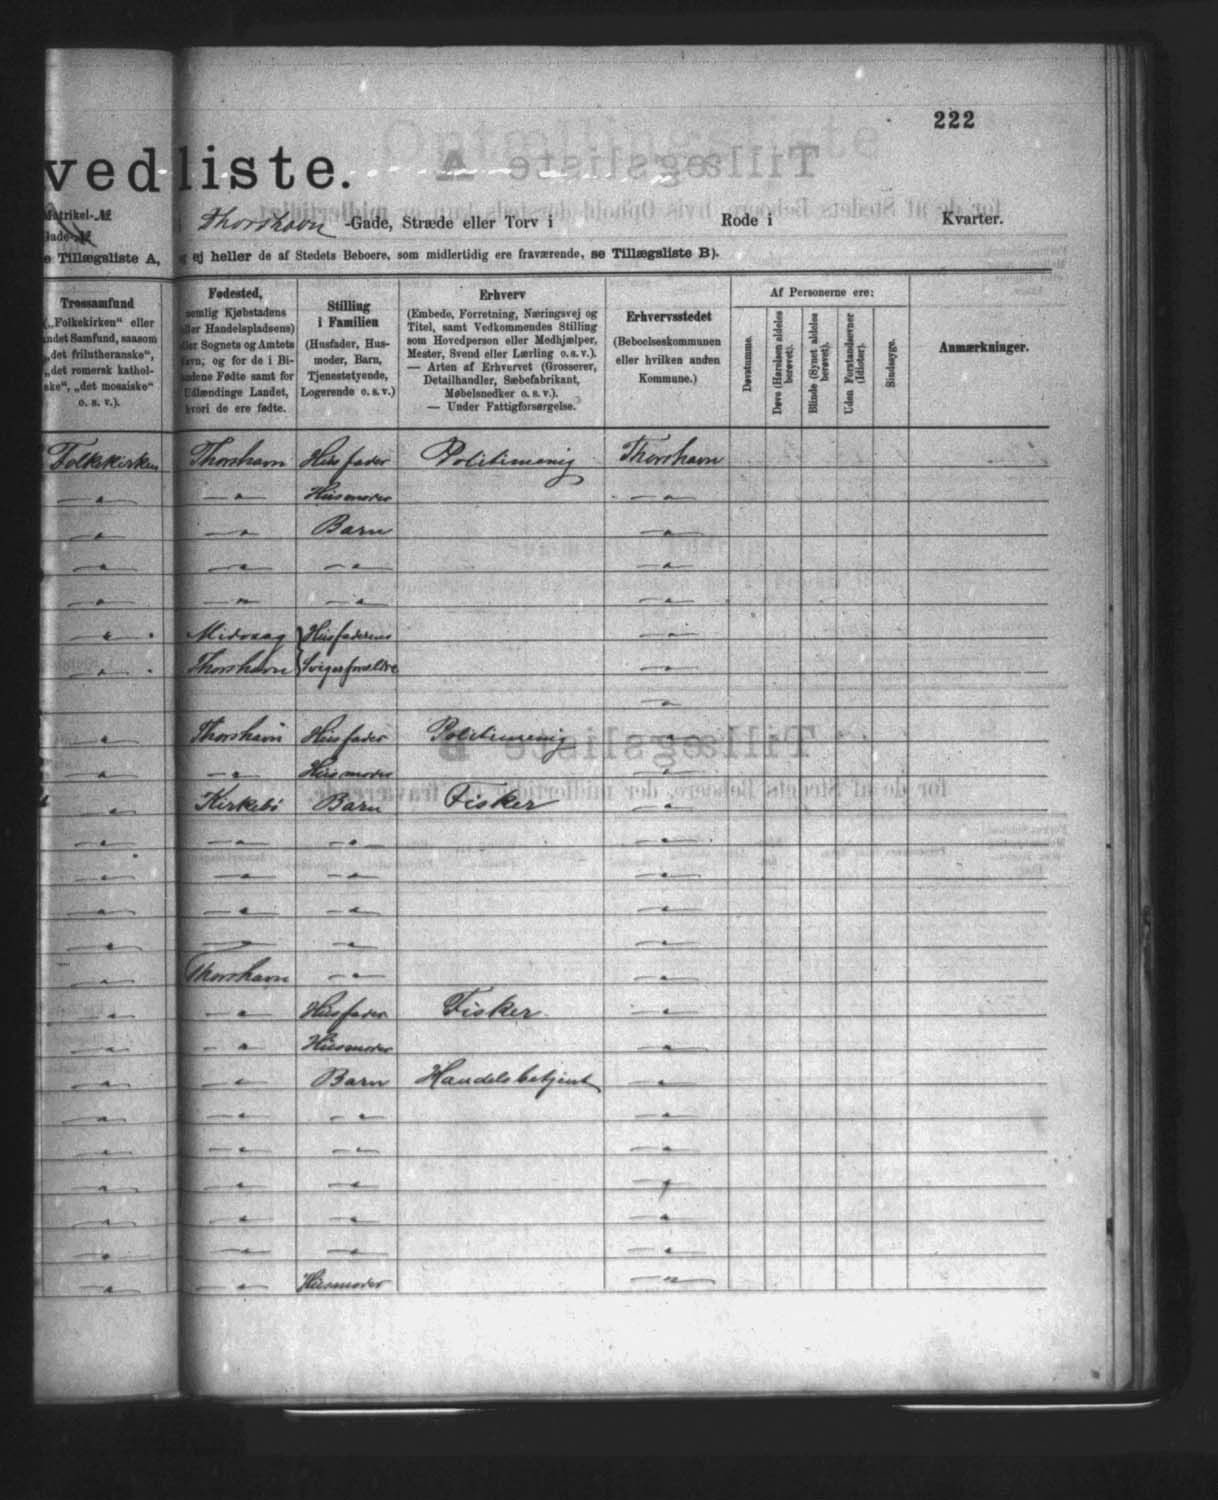 222
vedliste.
Matrikel-№
Gade-№
Thorshavn -Gade, Stræde eller Torv i Rode i Kvarter.
e Tillægsliste A, g ej heller de af Stedets Beboere, som midlertidig ere fraværende, se Tillægsliste B).
Trossamfund
(„Folkekirken“ eller
andet Samfund, saasom
„det frilutheranske“,
„det romersk kathol-
ske“, „det mosaiske“
o. s. v.).
Fødested,
nemlig Kjøbstadens
eller Handelspladsens)
eller Sognets og Amtets
Navn; og for de i Bi-
landene Fødte samt for
Udlændinge Landet,
hvori de ere fødte.
Stilling
i Familien
(Husfader, Hus-
moder, Barn,
Tjenestetyende,
Logerende o. s. v.)
Erhverv
(Embede, Forretning, Næringsvej og
Titel, samt Vedkommendes Stilling
som Hovedperson eller Medhjælper,
Mester, Svend eller Lærling o. s. v.).
— Arten af Erhvervet (Grosserer,
Detailhandler, Sæbefabrikant,
Møbelsnedker o. s. v.).
— Under Fattigforsørgelse.
Erhvervsstedet
(Beboelseskommunen
eller hvilken anden
Kommune.)
Af Personerne ere:
Døvstumme.
Døve (Hørelsen aldeles
berøvet).
Blinde (Synet aldeles
berøvet).
Uden Forstandsevner
(Idioter).
Sindssyge.
Anmærkninger.
Folkekirken Thorshavn Husfader Politimenig Thorshavn
—"— —"— Husmoder —"—
—"— —"— Barn —"—
—"— —"— —"— —"—
—"— —"— —"— —"—
—"— Midvaag Husfaderens —"—
—"— Thorshavn Svigerforældre —"—
—"—
—"— Thorshavn Husfader Politimenig —"—
—"— —"— Husmoder —"—
—"— Kirkebö Barn Fisker —"—
—"— —"— —"— —"—
—"— —"— —"— —"—
—"— —"— —"— —"—
—"— —"— —"— —"—
—"— Thorshavn —"— —"—
—"— —"— Husfader Fisker —"—
—"— —"— Husmoder —"—
—"— —"— Barn Handelsbetjent —"—
—"— —"— —"— —"—
—"— —"— —"— —"—
—"— —"— —"— —"—
—"— —"— —"— —"—
—"— —"— —"— —"—
—"— —"— Husmoder —"—